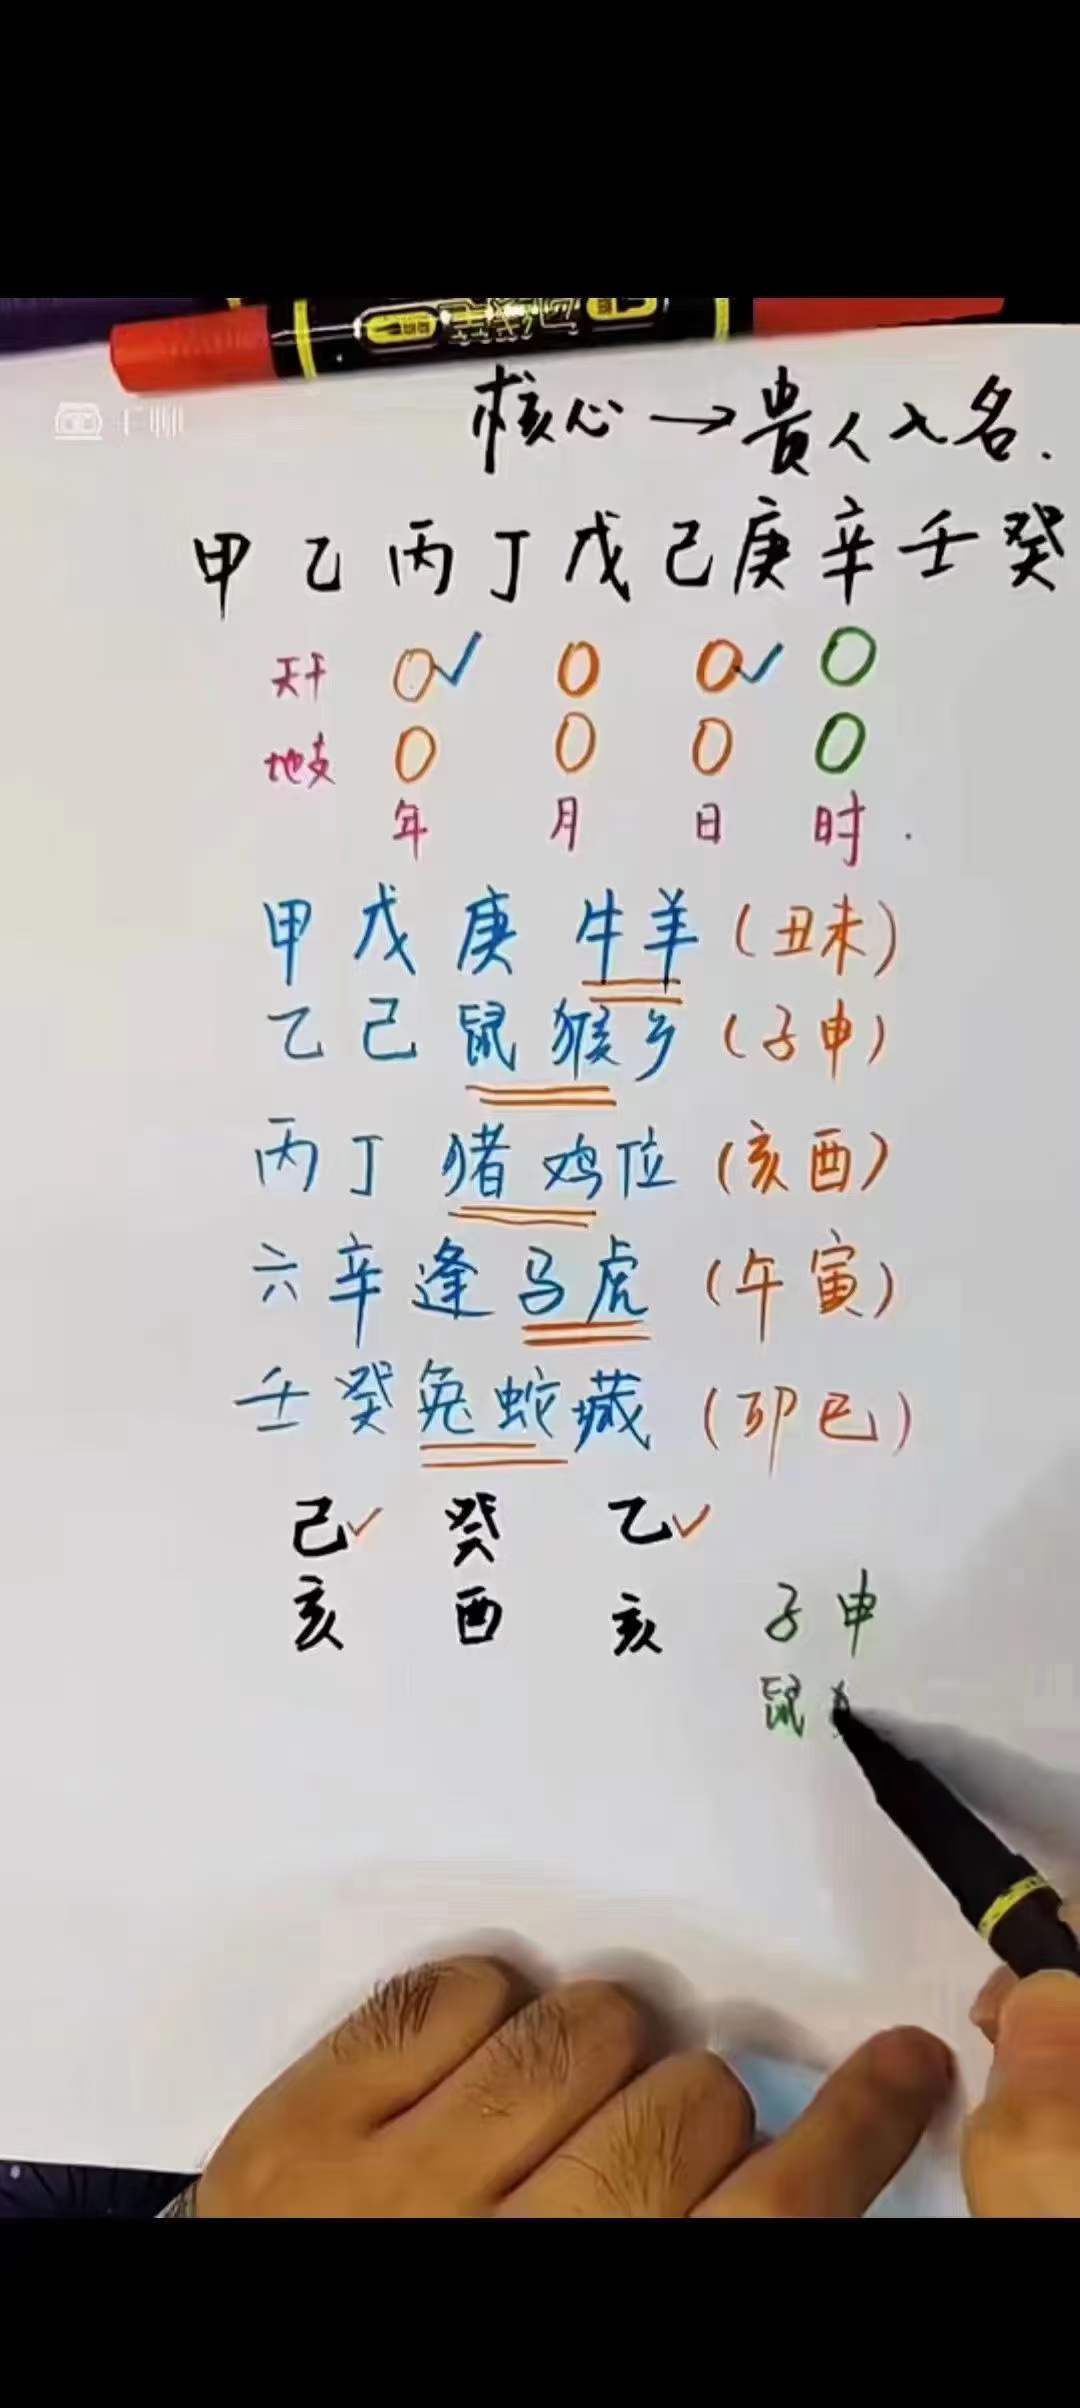 核心→贵人入名.
甲乙丙丁戊己庚辛壬癸
天干 0✓ 0 0✓ 0
地支 0 0 0 0
年 月 日 时.
甲戊庚牛羊(丑未)
乙己鼠猴乡(子申)
丙丁猪鸡位(亥酉)
六辛逢马虎(午寅)
壬癸兔蛇藏(卯巳)
己✓ 癸 乙✓
亥 酉 亥 子申
鼠